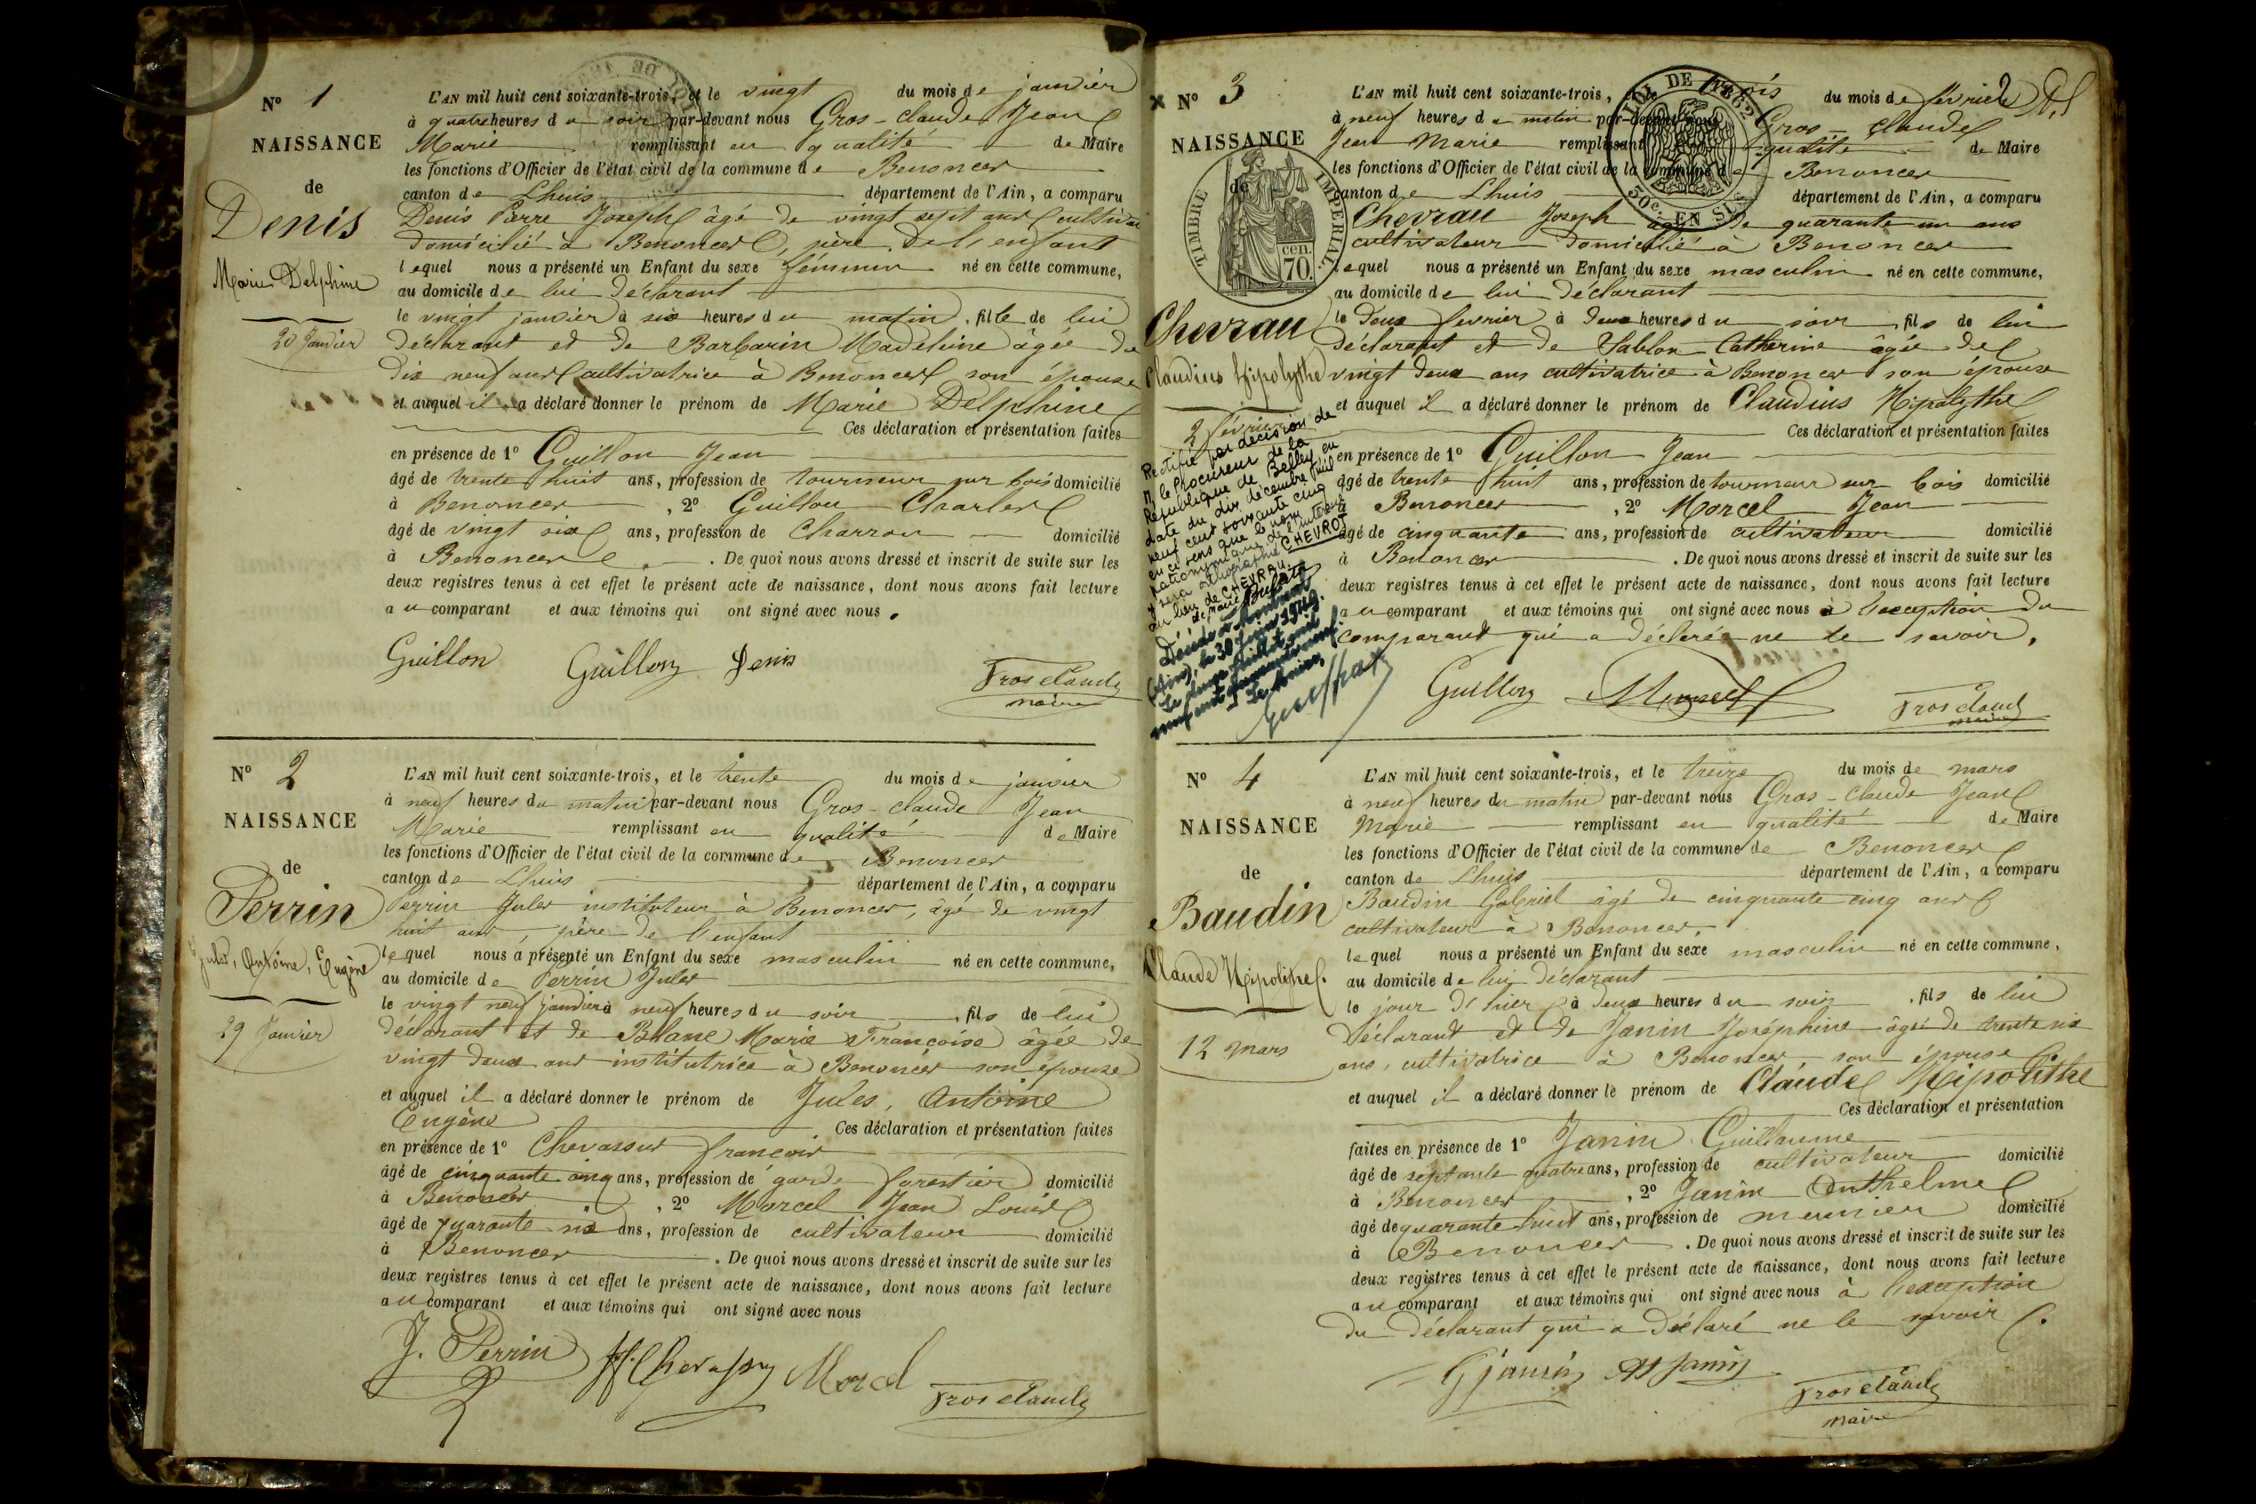 N° 1
NAISSANCE
de
Denis
Marie Delphine
20 Janvier
L'AN mil huit cent soixante-trois, et le vingt du mois de janvier
à quatre heures du soir par-devant nous Gros-Claude Jean
Marie remplissant en qualité de Maire
les fonctions d'Officier de l'état civil de la commune de Benonces
canton de Lhuis département de l'Ain, a comparu
Denis Pierre Joseph âgé de vingt sept ans cultivateur
domicilié à Benonces, père de l'enfant
lequel nous a présenté un Enfant du sexe féminin né en cette commune,
au domicile de lui déclarant
le vingt janvier à six heures du matin, fille de lui
déclarant et de Barbarin Madeleine âgée de
dix neuf ans cultivatrice à Benonces son épouse
et auquel il a déclaré donner le prénom de Marie Delphine
Ces déclaration et présentation faites
en présence de 1° Guillon Jean
âgé de trente huit ans, profession de tourneur sur bois domicilié
à Benonces, 2° Guillon Charles
âgé de vingt six ans, profession de Charron domicilié
à Benonces. De quoi nous avons dressé et inscrit de suite sur les
deux registres tenus à cet effet le présent acte de naissance, dont nous avons fait lecture
au comparant et aux témoins qui ont signé avec nous.
Guillon Guillon Denis Gros Claude
maire
N° 2
NAISSANCE
de
Perrin
Jules, Antoine, Eugène
29 Janvier
L'AN mil huit cent soixante-trois, et le trente du mois de janvier
à neuf heures du matin par-devant nous Gros-Claude Jean
Marie remplissant en qualité de Maire
les fonctions d'Officier de l'état civil de la commune de Benonces
canton de Lhuis département de l'Ain, a comparu
Perrin Jules instituteur à Benonces, âgé de vingt
huit ans, père de l'enfant
lequel nous a présenté un Enfant du sexe masculin né en cette commune,
au domicile de Perrin Jules
le vingt neuf janvier à neuf heures du soir, fils de lui
déclarant et de Blanc Marie Françoise âgée de
vingt deux ans institutrice à Benonces son épouse
et auquel il a déclaré donner le prénom de Jules, Antoine
Eugène Ces déclaration et présentation faites
en présence de 1° Chevassus françois
âgé de cinquante cinq ans, profession de garde forestier domicilié
à Benonces, 2° Marcel Jean Louis
âgé de quarante six ans, profession de cultivateur domicilié
à Benonces. De quoi nous avons dressé et inscrit de suite sur les
deux registres tenus à cet effet le présent acte de naissance, dont nous avons fait lecture
au comparant et aux témoins qui ont signé avec nous
J. Perrin Marcel Gros Claude
N° 3
NAISSANCE
de
TIMBRE IMPERIAL.
cen.
70.
Chevrau
Claudius Hipolythe
2 février
Rectifié par décision de
M. le Procureur de la
République de Belley en
date du dix décembre mil
neuf cent soixante cinq
en ce sens que le nom
patronymique de l'intéressé
y sera orthographié CHEVROT
au lieu de CHEVRAU.
Décédé à
(Ain), le 30 Juin 1949.
Le deux juillet mil
neuf cent quarante neuf.
Le Maire,
L'AN mil huit cent soixante-trois, et le trois du mois de février
à neuf heures du matin par-devant nous Gros-Claude
Jean Marie remplissant en qualité de Maire
les fonctions d'Officier de l'état civil de la commune de Benonces
canton de Lhuis département de l'Ain, a comparu
Chevrau Joseph âgé de quarante un ans
cultivateur domicilié à Benonces
lequel nous a présenté un Enfant du sexe masculin né en cette commune,
au domicile de lui déclarant
le deux février à deux heures du soir, fils de lui
déclarant et de Sablon Catherine âgée de
vingt deux ans cultivatrice à Benonces son épouse
et auquel il a déclaré donner le prénom de Claudius Hipolythe
Ces déclaration et présentation faites
en présence de 1° Guillon Jean
âgé de trente huit ans, profession de tourneur sur bois domicilié
à Benonces, 2° Marcel Jean
âgé de cinquante ans, profession de cultivateur domicilié
à Benonces. De quoi nous avons dressé et inscrit de suite sur les
deux registres tenus à cet effet le présent acte de naissance, dont nous avons fait lecture
au comparant et aux témoins qui ont signé avec nous à l'exception du
comparant qui a déclaré ne le savoir.
Guillon Marcel Gros Claude
maire
N° 4
NAISSANCE
de
Baudin
Claude Hipolite
12 mars
L'AN mil huit cent soixante-trois, et le treize du mois de mars
à neuf heures du matin par-devant nous Gros-Claude Jean
Marie remplissant en qualité de Maire
les fonctions d'Officier de l'état civil de la commune de Benonces
canton de Lhuis département de l'Ain, a comparu
Baudin Gabriel âgé de cinquante cinq ans
cultivateur à Benonces
lequel nous a présenté un Enfant du sexe masculin né en cette commune,
au domicile de lui déclarant
le jour d'hier à deux heures du soir, fils de lui
déclarant et de Janin Joséphine âgée de trente six
ans, cultivatrice à Benonces son épouse
et auquel il a déclaré donner le prénom de Claude Hipolithe
Ces déclaration et présentation
faites en présence de 1° Janin Guillaume
âgé de septante quatre ans, profession de cultivateur domicilié
à Benonces, 2° Janin Anthelme
âgé de quarante huit ans, profession de meunier domicilié
à Benonces. De quoi nous avons dressé et inscrit de suite sur les
deux registres tenus à cet effet le présent acte de naissance, dont nous avons fait lecture
au comparant et aux témoins qui ont signé avec nous à l'exception
du déclarant qui a déclaré ne le savoir.
G janin At Janin Gros Claude
maire